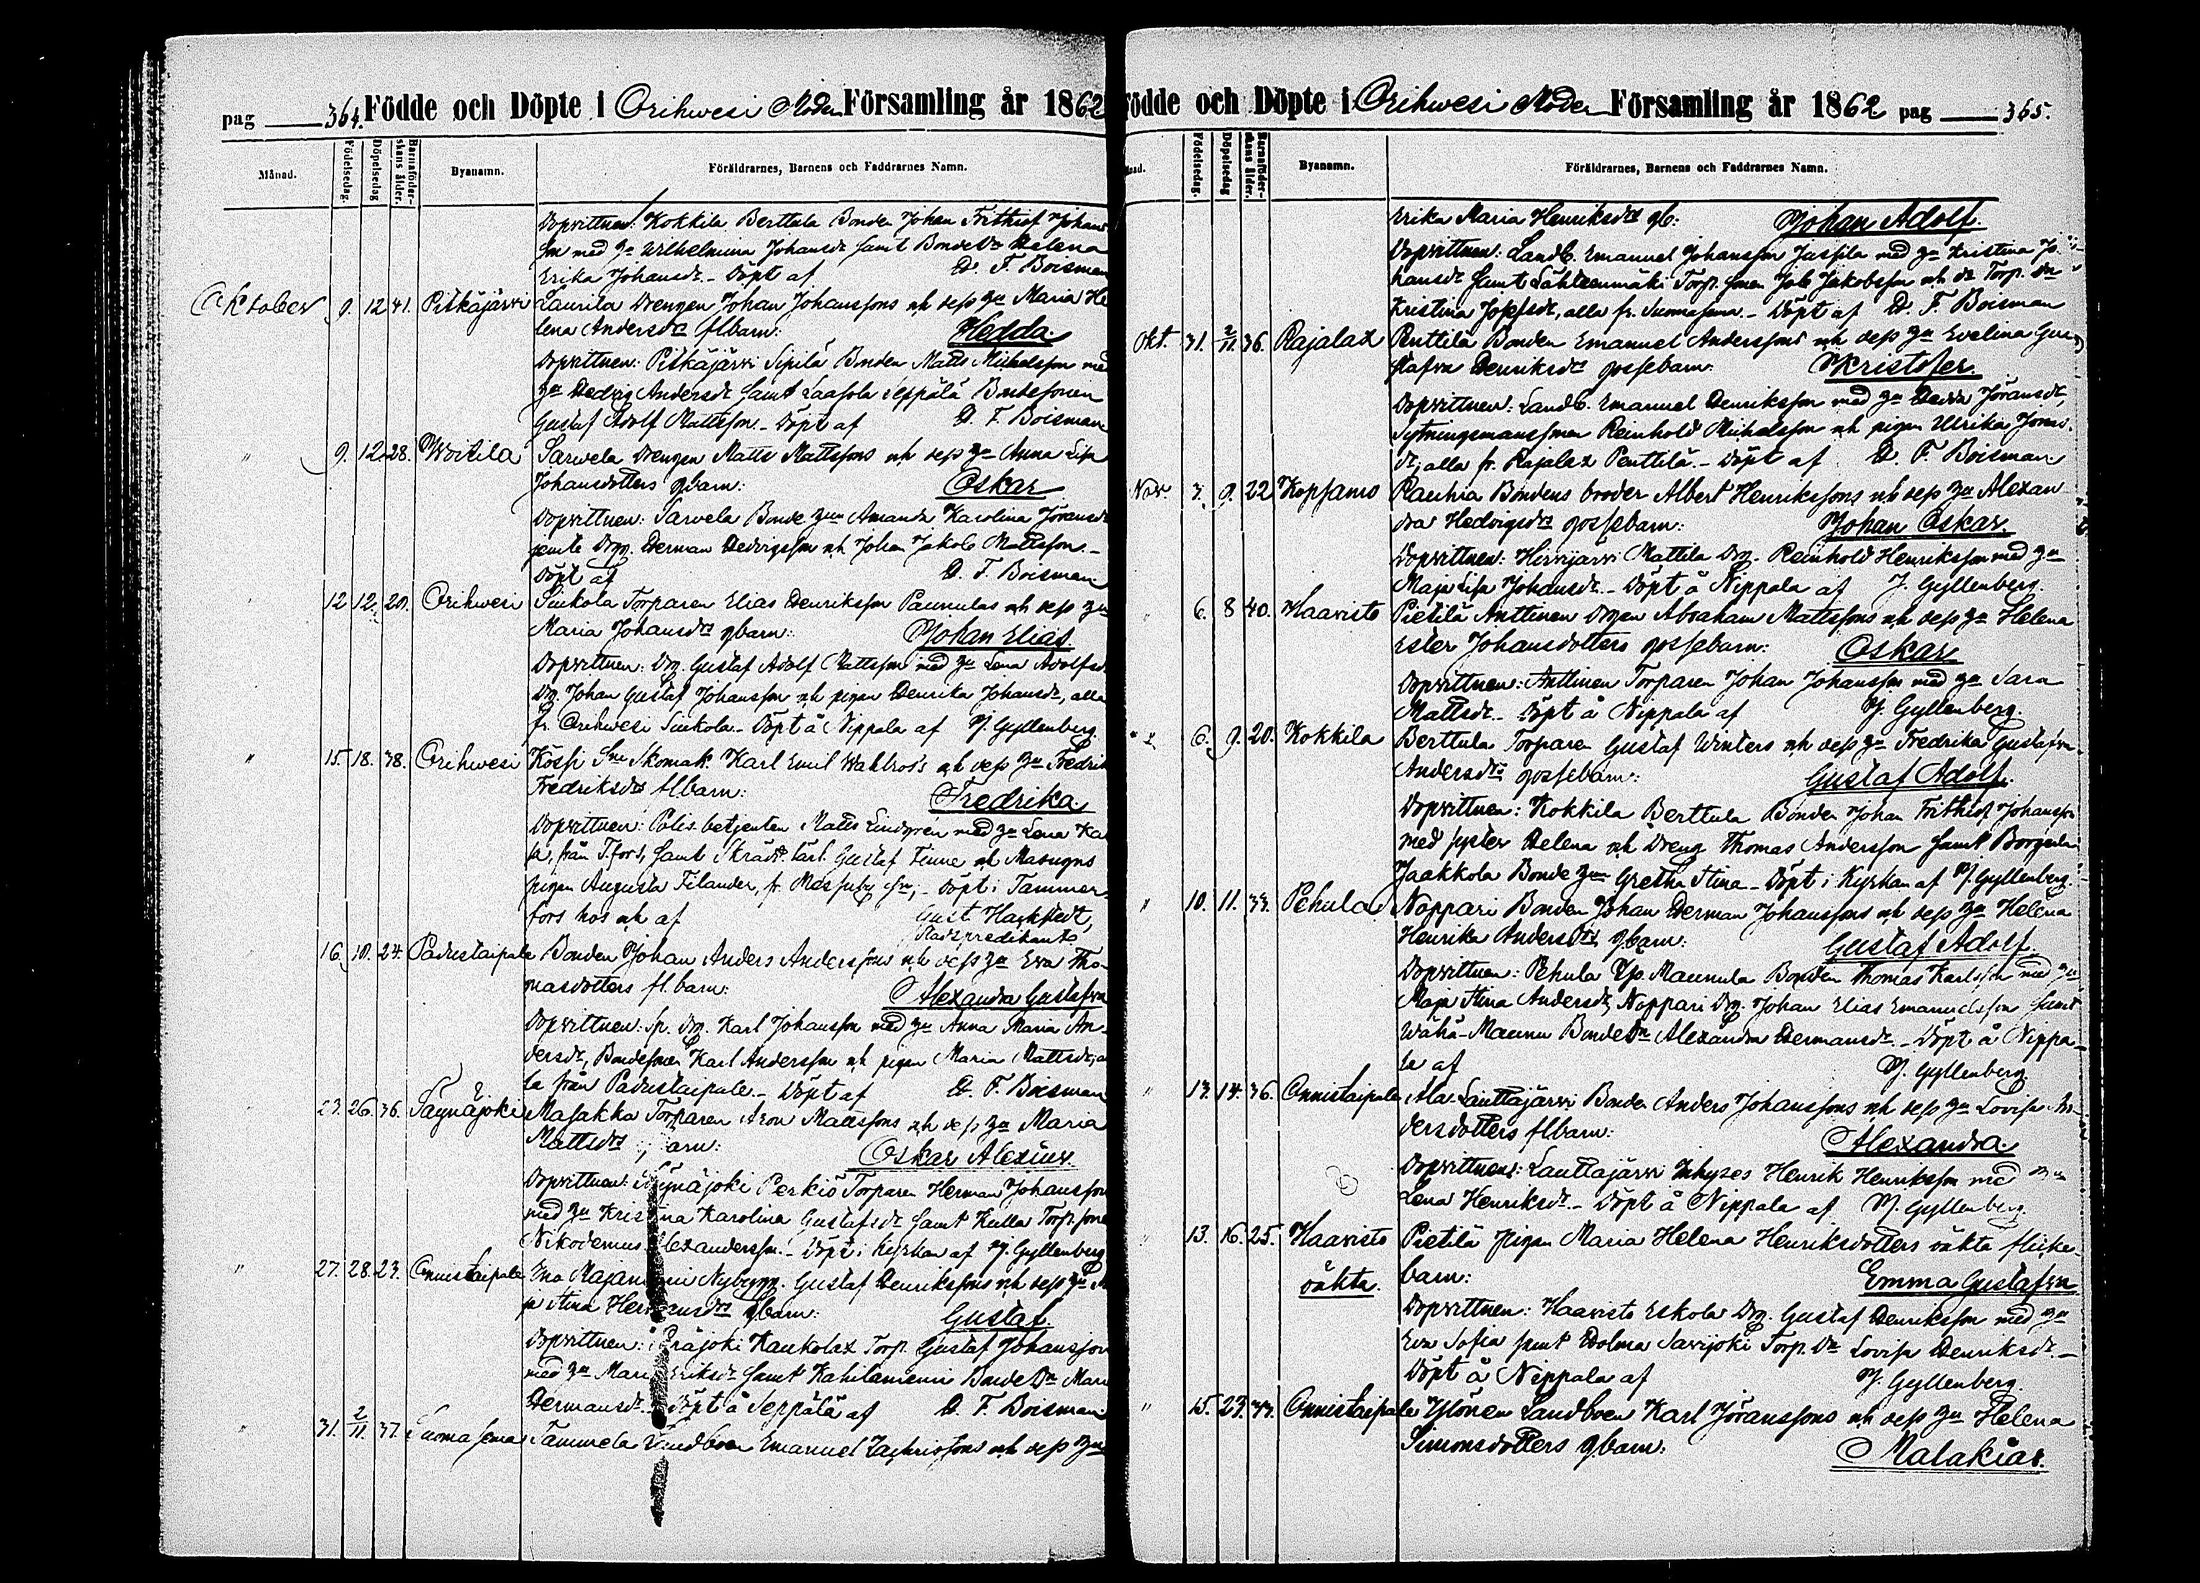 pag 364. Födde och Döpte i Orihwesi Moder Församling år 1862
Månad. Födelsedag. Döpelsedag Barnaföderskans ålder. Byanamn. Föräldrarnes, Barnens och Faddrarnes Namn.
Dopvittnen: Kokkila Berttula Bonden Johan Frithiof Johans
son med hu Wilhelmina Johansdr samt Bonde Dr Helena
Erika Johansdr. Döpt af D. F. Boisman
Oktober 9. 12 41. Pitkäjärvi Laurila Drengen Johan Johanssons och dess hu Maria He
lena Andersdrs flbarn: Hedda.
Dopvittnen: Pitkäjärvi Sipilä Bonden Matts Michelsson med
hu Hedvig Andersdr samt Laasola Seppälä Bondesonen
Gustaf Adolf Mattsson. Döpt af D. F. Boisman
" 9. 12. 28. Woitila Sarwela Drengen Matts Mattssons och dess hu Anna Lisa
Johansdotters gbarn: Oskar
Dopvittnen: Sarvela Bonde hun Amanda Karolina Göransdr
jemte Drg. Herman Hedvigsson och Johan Jakob Mattsson.
Döpt af D. F. Boisman
12 12. 29. Orihwesi Siukola Torparen Elias Henriksson Paunulas och dess hu
Maria Johansdrs gbarn: Johan Elias
Dopvittnen: Drg. Gustaf Adolf Mattsson med hu Lena Adolfsd.
Drg. Johan Gustaf Johansson och pigan Henrika Johansdr, alla
fr. Orihwesi Siukola. Döpt å Nippala af J. Gyllenberg.
" 15. 18. 38. Orihwesi Skomak. Karl Emil Wahlroos och dess hu Fredrik
Fredriksdrs flbarn: Fredrika.
Dopvittnen: Polis betjenten Matts Lindgren med hu Lena Ka
sa, från T.fors, samt Gustaf Finne och Masugns
pigan Augusta Filander, fr. Messuby Döpt i Tammer-
fors hos och af Gust. Hackstedt,
Stadspredikant
16. 19. 24. Padustaipale Bonden Johan Anders Anderssons och dess hu Eva Tho-
masdotters fl.barn: Alexandra Gustafva
Dopvittnen: Sp. Drg. Karl Johansson med hu Anna Maria An-
dersdr, Bondesonen Karl Andersson och pigan Maria Mattsdr, al
la från Padustaipale. Döpt af D. F. Boisman
23. 26. 36. Säynäjoki Masakka Torparen Aron Mattssons och dess hu Maria
Mattsdrs barn: Oskar Alexius.
Dopvittnen: Säynäjoki Perkiö Torparen Herman Johansson
med hu Kristina Karolina Gustafsdr samt Kulla Torp. sone
Nikodemus Alexandersson. Döpt i Kyrkan af J. Gyllenberg
" 27. 28. 23. Onnistaipale Eno Rajaniemi Nybygg. Gustaf Henrikssons och dess hu Ma
ja Stina Hermansdrs gbarn: Gustaf.
Dopvittnen: Eräjoki Kaukolax Torp. Gustaf Johansson
med hu Mari Eriksdr samt Kahilaniemi Bonde Dr Mari
Hermansdr. Döpt å Seppälä af D. F. Boisman
" 31. 2/11. 37. Suomasema Tammela Landboen Emanuel Zachrissons och dess hu
pag 365. Födde och Döpte i Orihwesi Moder Församling år 1862
Födelsedag. Döpelsedag Barnaföderskans ålder. Byanamn. Föräldrarnes, Barnens och Faddrarnes Namn.
Erika Maria Henriksdrs gb: Johan Adolf.
Dopvittnen: Landb. Emanuel Johansson Jussila med hu Kristina Jo-
hansdr samt Lähteenmäki Torp. sonen Job Jakobsson och do Torp. Dr
Kristina Josefsdr, alla fr. Suomasema. Döpt af D. F. Boisman
Okt. 31. 2/11. 36. Rajalax Penttilä Bonden Emanuel Anderssons och dess hu Evelina Gus
tafva Henriksdrs gossebarn: Kristofer
Dopvittnen: Landb. Emanuel Henriksson med hu Hedda Göransdr,
Sytningsmanssonen Reinhold Michelsson och pigan Ulrika Jonas
dr, alla fr. Rajalax Penttilä. Döpt af D. F. Boisman
Nov. 3. 9. 22. Kopsamo Rauhia Bondens broder Albert Henrikssons och dess hu Alexan
dra Hedvigsdrs gossebarn: Johan Oskar.
Dopvittnen: Hirvijärvi Mattila Drg. Reinhold Henriksson med hu
Maja Lisa Johansdr. Döpt å Nippala af J. Gyllenberg.
" 6. 8 40. Haavisto Pietilä Anttinen Drgen Abraham Mattssons och dess hu Helena
Ester Johansdotters gossebarn: Oskar
Dopvittnen: Anttinen Torparen Johan Johansson med hu Sara
Mattsdr. Döpt å Nippala af J. Gyllenberg.
6. 9. 20. Kokkila Berttula Torparen Gustaf Winters och dess hu Fredrika Gustafva
Andersdrs gossebarn: Gustaf Adolf.
Dopvittnen: Kokkila Berttula Bonden Johan Frithiof Johansson
med syster Helena och Dreng Thomas Andersson samt
Jaakkola Bonde hun Gretha Stina. Döpt i Kyrkan af J. Gyllenberg.
" 10. 11. 33. Pehula Noppari Bonden Johan Herman Johanssons och dess hu Helena
Henrika Andersdrs gbarn: Gustaf Adolf.
Dopvittnen: Pehula Maunula Bonden Thomas Karlsson med hu
Maja Stina Andersdr, Noppari Drg. Johan Elias Emanuelsson samt
Wähä-Maunu Bonde Dr Alexandra Hermansdr. Döpt å Nippa-
la af J. Gyllenberg.
" 13. 14. 36. Onnistaipale Ala Lauttajärvi Bonden Anders Johanssons och dess hu Lovisa An-
dersdotters flbarn: Alexandra.
Dopvittnen: Lauttajärvi Inhyses Henrik Henriksson med hu
Lena Henriksdr. Döpt å Nippala af J. Gyllenberg.
" 13. 16. 25. Haavisto Pietilä Pigan Maria Helena Henriksdotters oäkta flicke-
oäkta. barn: Emma Gustafva
Dopvittnen: Haavisto Eskola Drg. Gustaf Henriksson med hu
Eva Sofia samt Holma Savijoki Torp. Dr Lovisa Henriksdr.
Döpt å Nippala af J. Gyllenberg.
" 15. 23. 33. Onnistaipale Ylönen Landboen Karl Göranssons och dess hu Helena
Simonsdotters gbarn: Malakias.